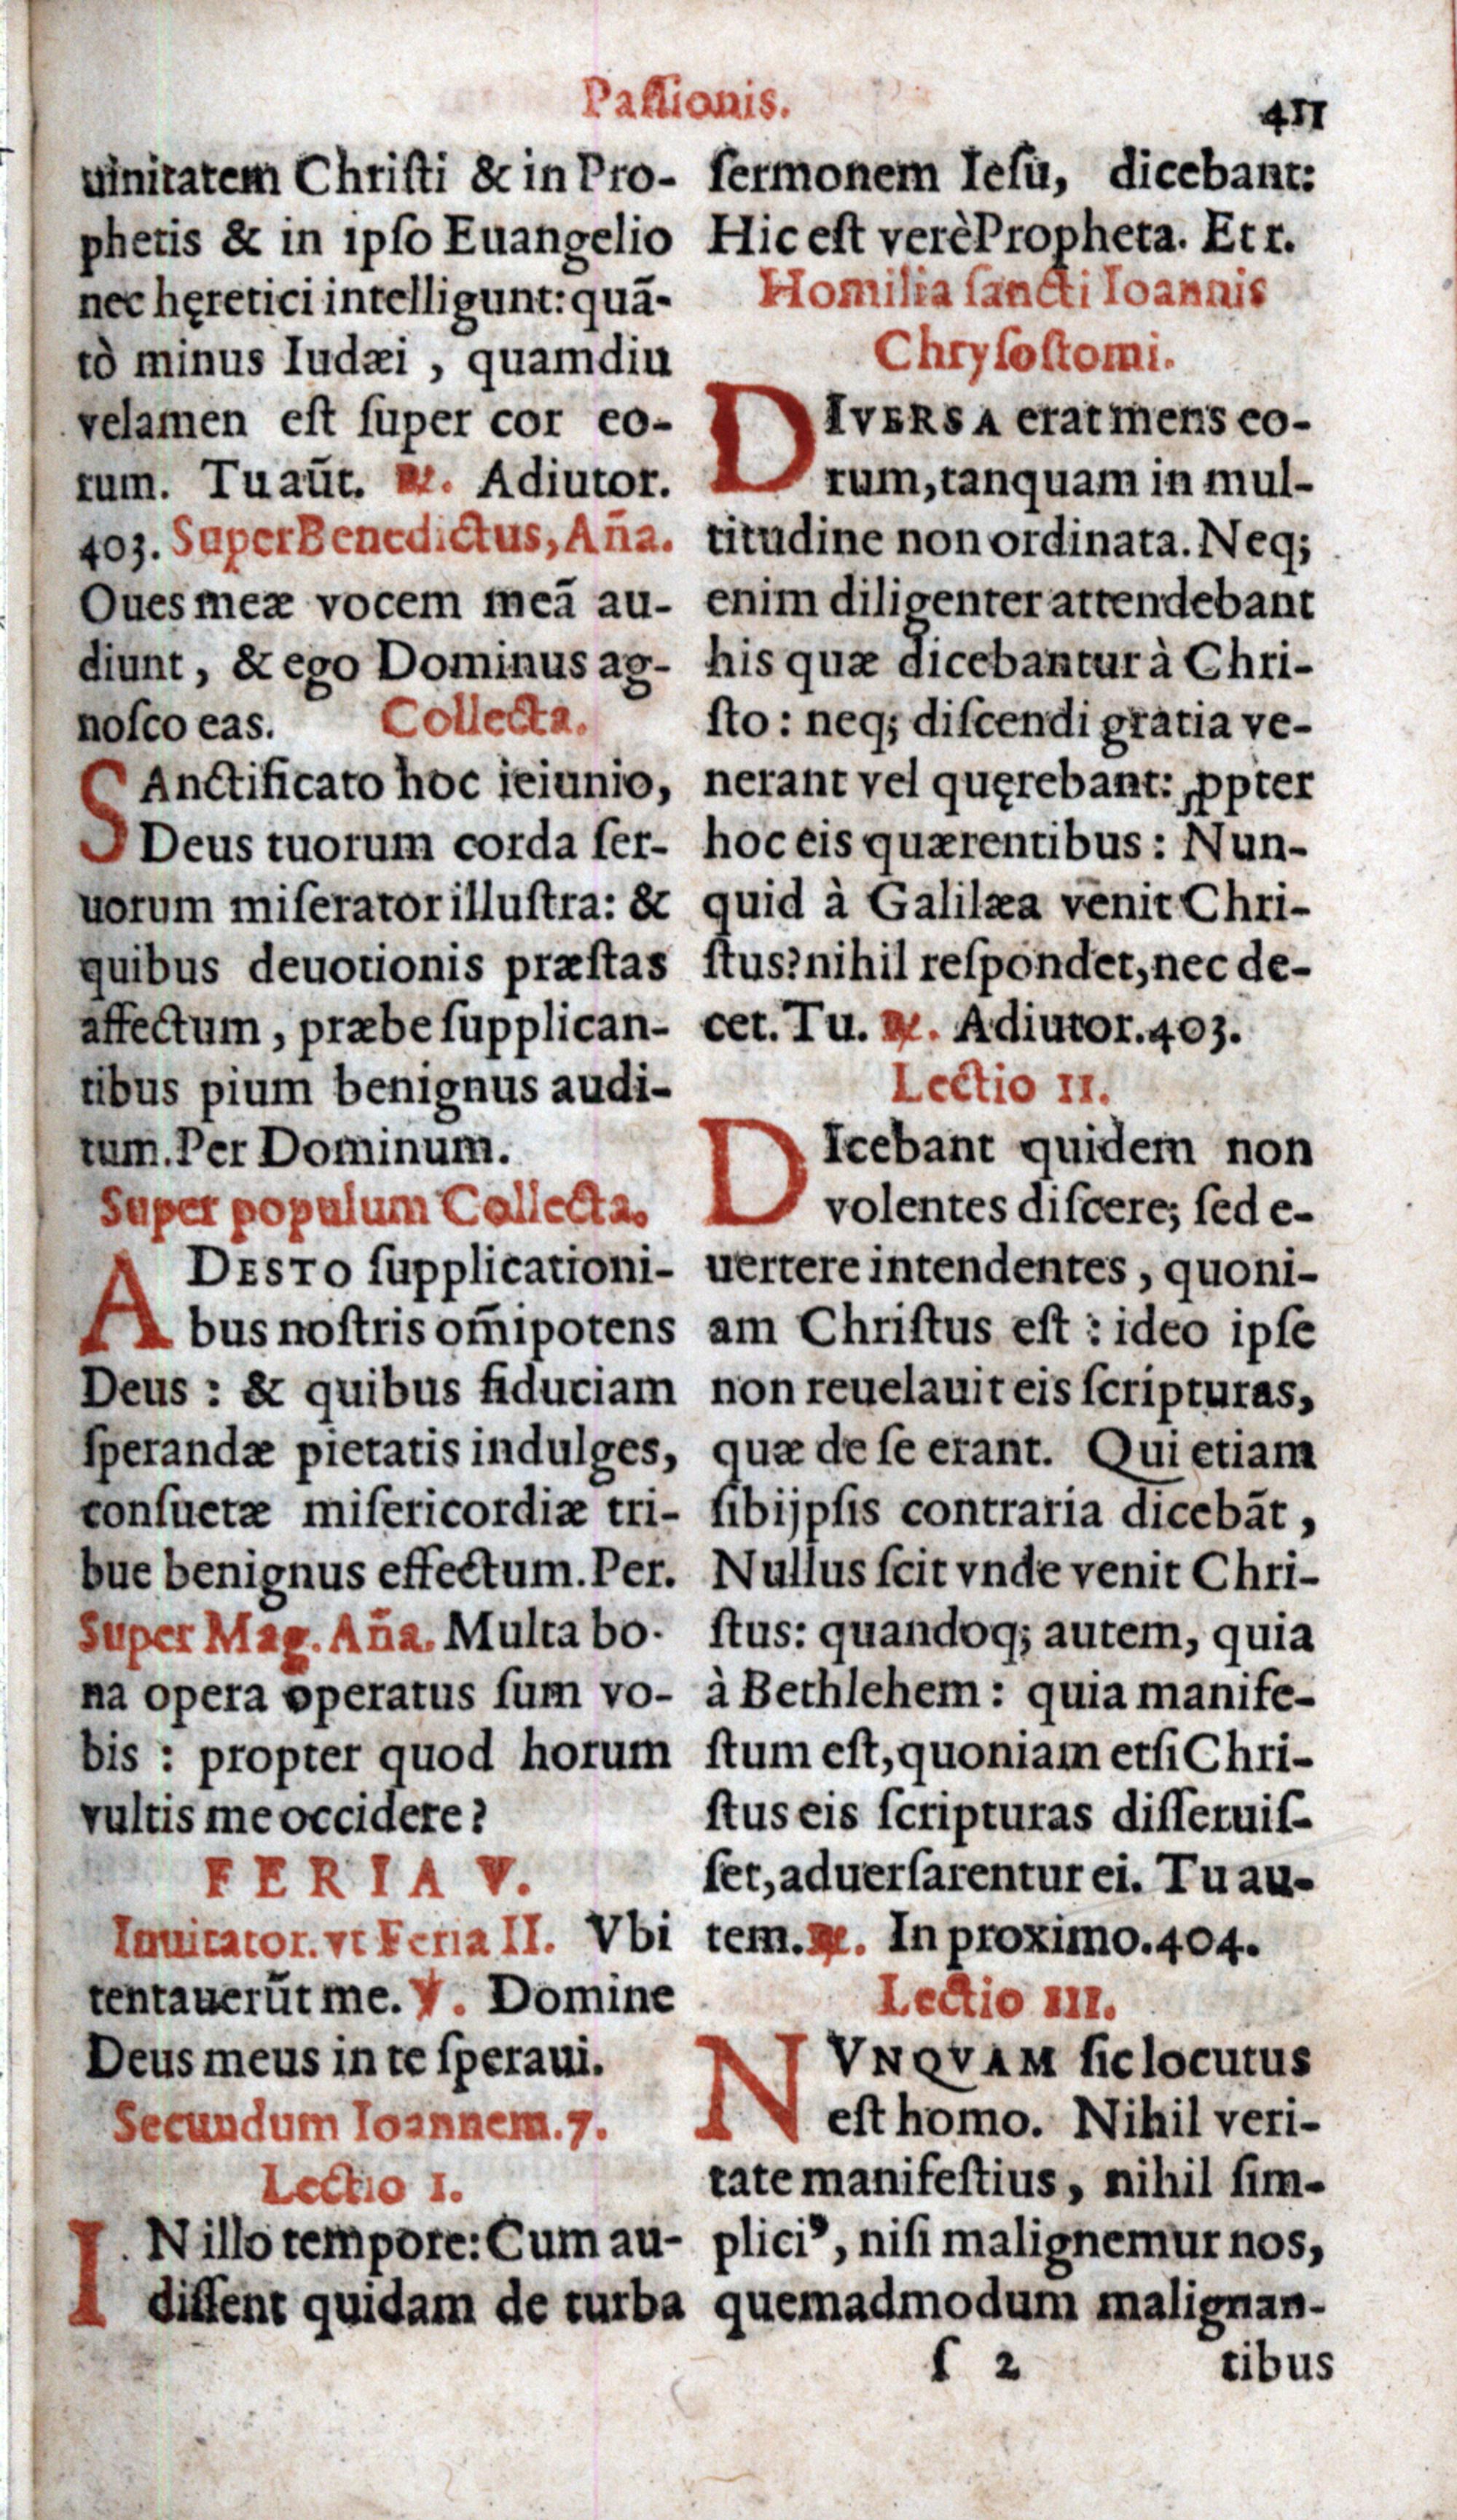 Paſſionis.
411
uinitatem Chriſti & in Pro-
phetis & in ipſo Euangelio
nec hęretici intelligunt: quã-
tò minus Iudæi, quamdiu
velamen eſt ſuper cor eo-
rum. Tu aũt. ℟. Adiutor.
403. Super Benedictus, Aña.
Oues meæ vocem meã au-
diunt, & ego Dominus ag-
noſco eas. Collecta.
SAnctificato hoc ieiunio,
Deus tuorum corda ſer-
uorum miſerator illuſtra: &
quibus deuotionis præſtas
affectum, præbe ſupplican-
tibus pium benignus audi-
tum. Per Dominum.
Super populum Collecta.
ADESTO ſupplicationi-
bus noſtris om̃ipotens
Deus: & quibus fiduciam
ſperandæ pietatis indulges,
conſuetæ miſericordiæ tri-
bue benignus effectum. Per.
Super Mag. Aña. Multa bo-
na opera operatus ſum vo-
bis: propter quod horum
vultis me occidere?
FERIA V.
Inuitator. vt Feria II. Vbi
tentauerũt me. ℣. Domine
Deus meus in te ſperaui.
Secundum Ioannem. 7.
Lectio I.
IN illo tempore: Cum au-
diſſent quidam de turba
ſermonem Ieſu, dicebant:
Hic eſt verè Propheta. Et r.
Homilia ſancti Ioannis
Chryſoſtomi.
DIVERSA erat mens eo-
rum, tanquam in mul-
titudine non ordinata. Neq;
enim diligenter attendebant
his quæ dicebantur à Chri-
ſto: neq; diſcendi gratia ve-
nerant vel quęrebant: ꝓpter
hoc eis quærentibus: Nun-
quid à Galilæa venit Chri-
ſtus? nihil reſpondet, nec de-
cet. Tu. ℟. Adiutor. 403.
Lectio II.
DIcebant quidem non
volentes diſcere; ſed e-
uertere intendentes, quoni-
am Chriſtus eſt: ideo ipſe
non reuelauit eis ſcripturas,
quæ de ſe erant. Qui etiam
ſibijpſis contraria dicebãt,
Nullus ſcit vnde venit Chri-
ſtus: quandoq; autem, quia
à Bethlehem: quia manife-
ſtum eſt, quoniam etſi Chri-
ſtus eis ſcripturas diſſeruiſ-
ſet, aduerſarentur ei. Tu au-
tem. ℟. In proximo. 404.
Lectio III.
NVNQVAM ſic locutus
eſt homo. Nihil veri-
tate manifeſtius, nihil ſim-
pliciꝰ, niſi malignemur nos,
quemadmodum malignan-
ſ 2
tibus